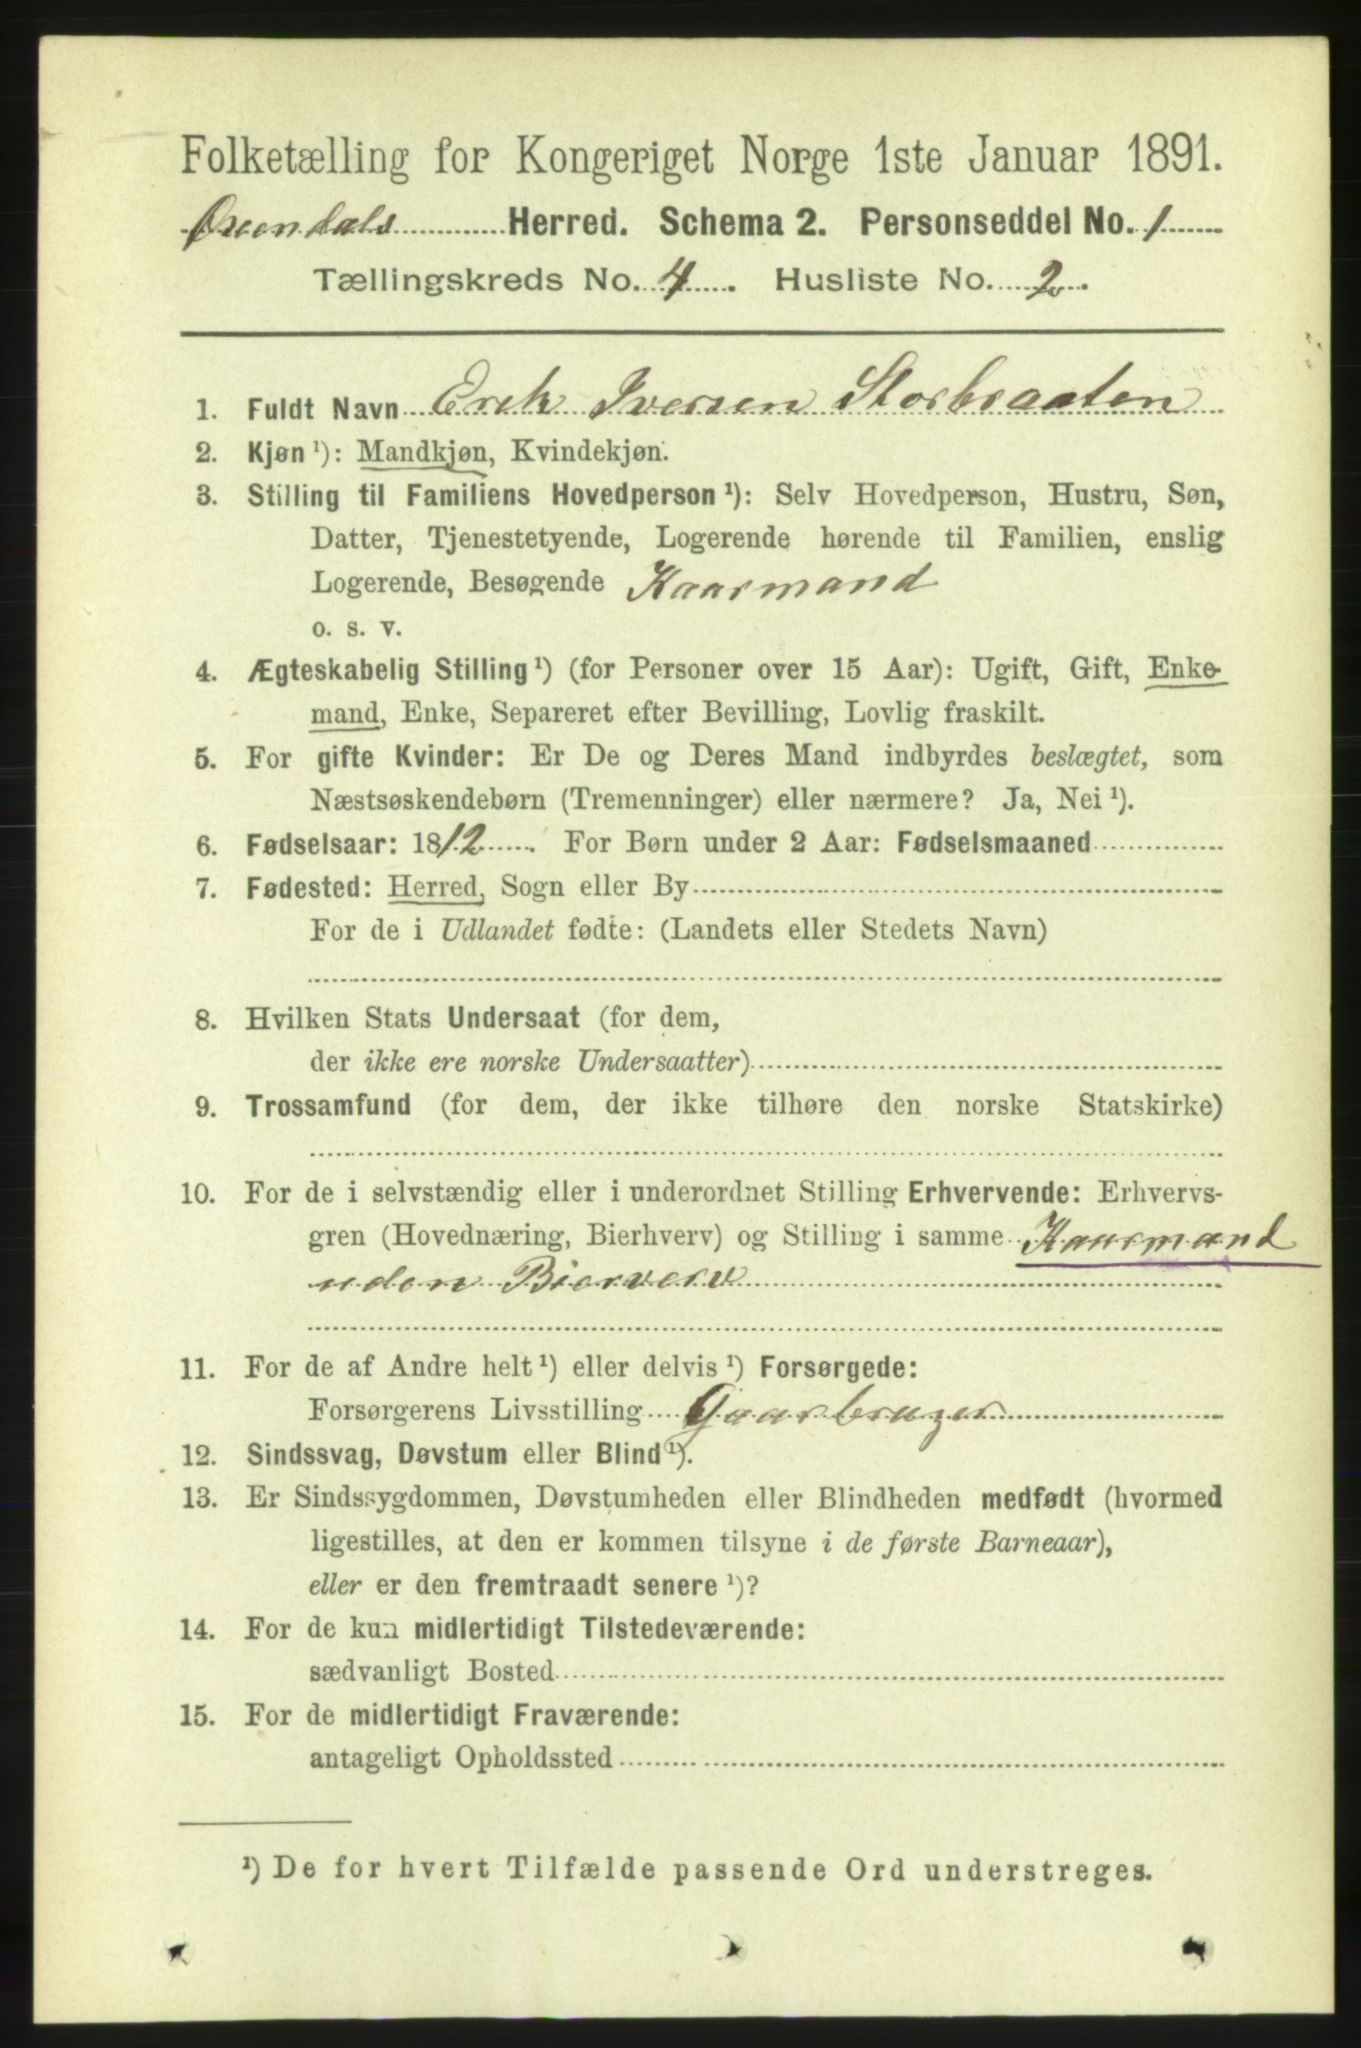 Folketælling for Kongeriget Norge 1ste Januar 1891.
Herred. Schema 2. Personseddel No. 1
Tællingskreds No. 4. Husliste No. 2.
1. Fuldt Navn Erek Iversen Storbraaten
2. Kjøn ¹): Mandkjøn, Kvindekjøn.
3. Stilling til Familiens Hovedperson ¹): Selv Hovedperson, Hustru, Søn,
Datter, Tjenestetyende, Logerende hørende til Familien, enslig
Logerende, Besøgende Kaarmand
o. s. v.
4. Ægteskabelig Stilling ¹) (for Personer over 15 Aar): Ugift, Gift, Enke-
mand, Enke, Separeret efter Bevilling, Lovlig fraskilt.
5. For gifte Kvinder: Er De og Deres Mand indbyrdes beslægtet, som
Næstsøskendebørn (Tremenninger) eller nærmere? Ja, Nei ¹).
6. Fødselsaar: 1812. For Børn under 2 Aar: Fødselsmaaned
7. Fødested: Herred, Sogn eller By
For de i Udlandet fødte: (Landets eller Stedets Navn)
8. Hvilken Stats Undersaat (for dem,
der ikke ere norske Undersaatter)
9. Trossamfund (for dem, der ikke tilhøre den norske Statskirke)
10. For de i selvstændig eller i underordnet Stilling Erhvervende: Erhvervs-
gren (Hovednæring, Bierhverv) og Stilling i samme Kaarmand
uden Bierverv
11. For de af Andre helt ¹) eller delvis ¹) Forsørgede:
Forsørgerens Livsstilling Gaarbruger
12. Sindssvag, Døvstum eller Blind ¹).
13. Er Sindssygdommen, Døvstumheden eller Blindheden medfødt (hvormed
ligestilles, at den er kommen tilsyne i de første Barneaar),
eller er den fremtraadt senere ¹)?
14. For de kun midlertidigt Tilstedeværende:
sædvanligt Bosted
15. For de midlertidigt Fraværende:
antageligt Opholdssted
¹) De for hvert Tilfælde passende Ord understreges.